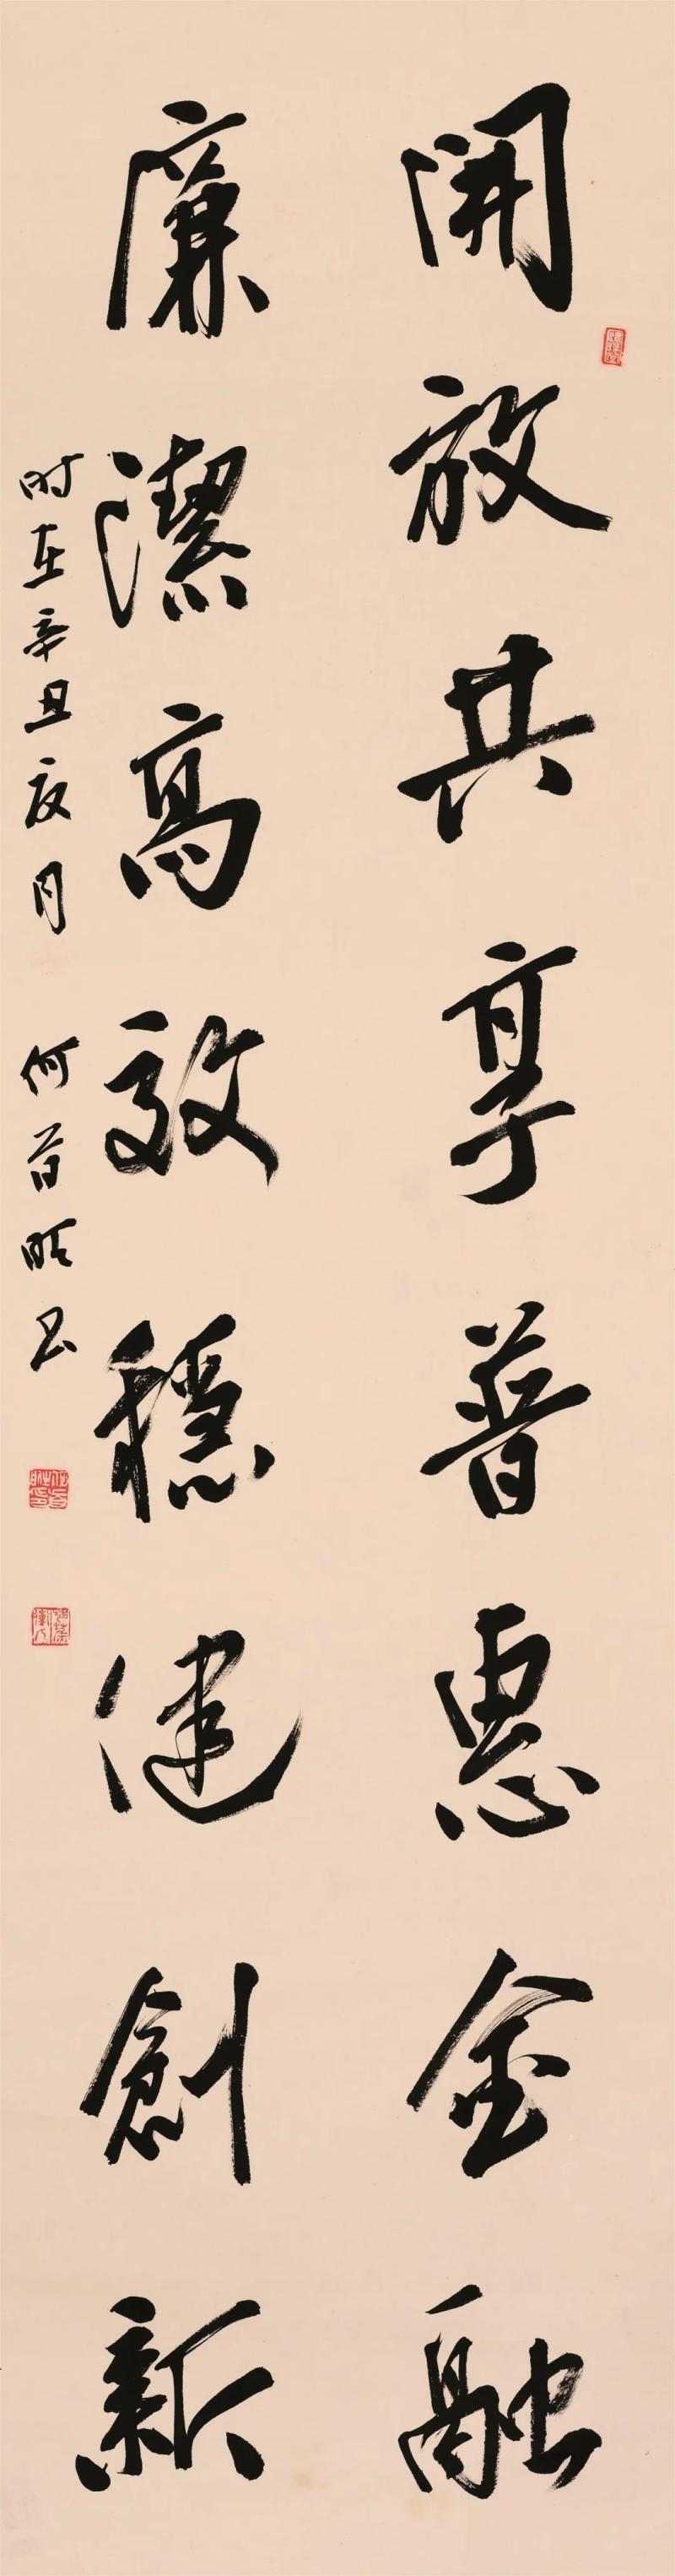 開放共享普惠金融
廉潔高效穩健創新
时在辛丑夜月 何首昭书